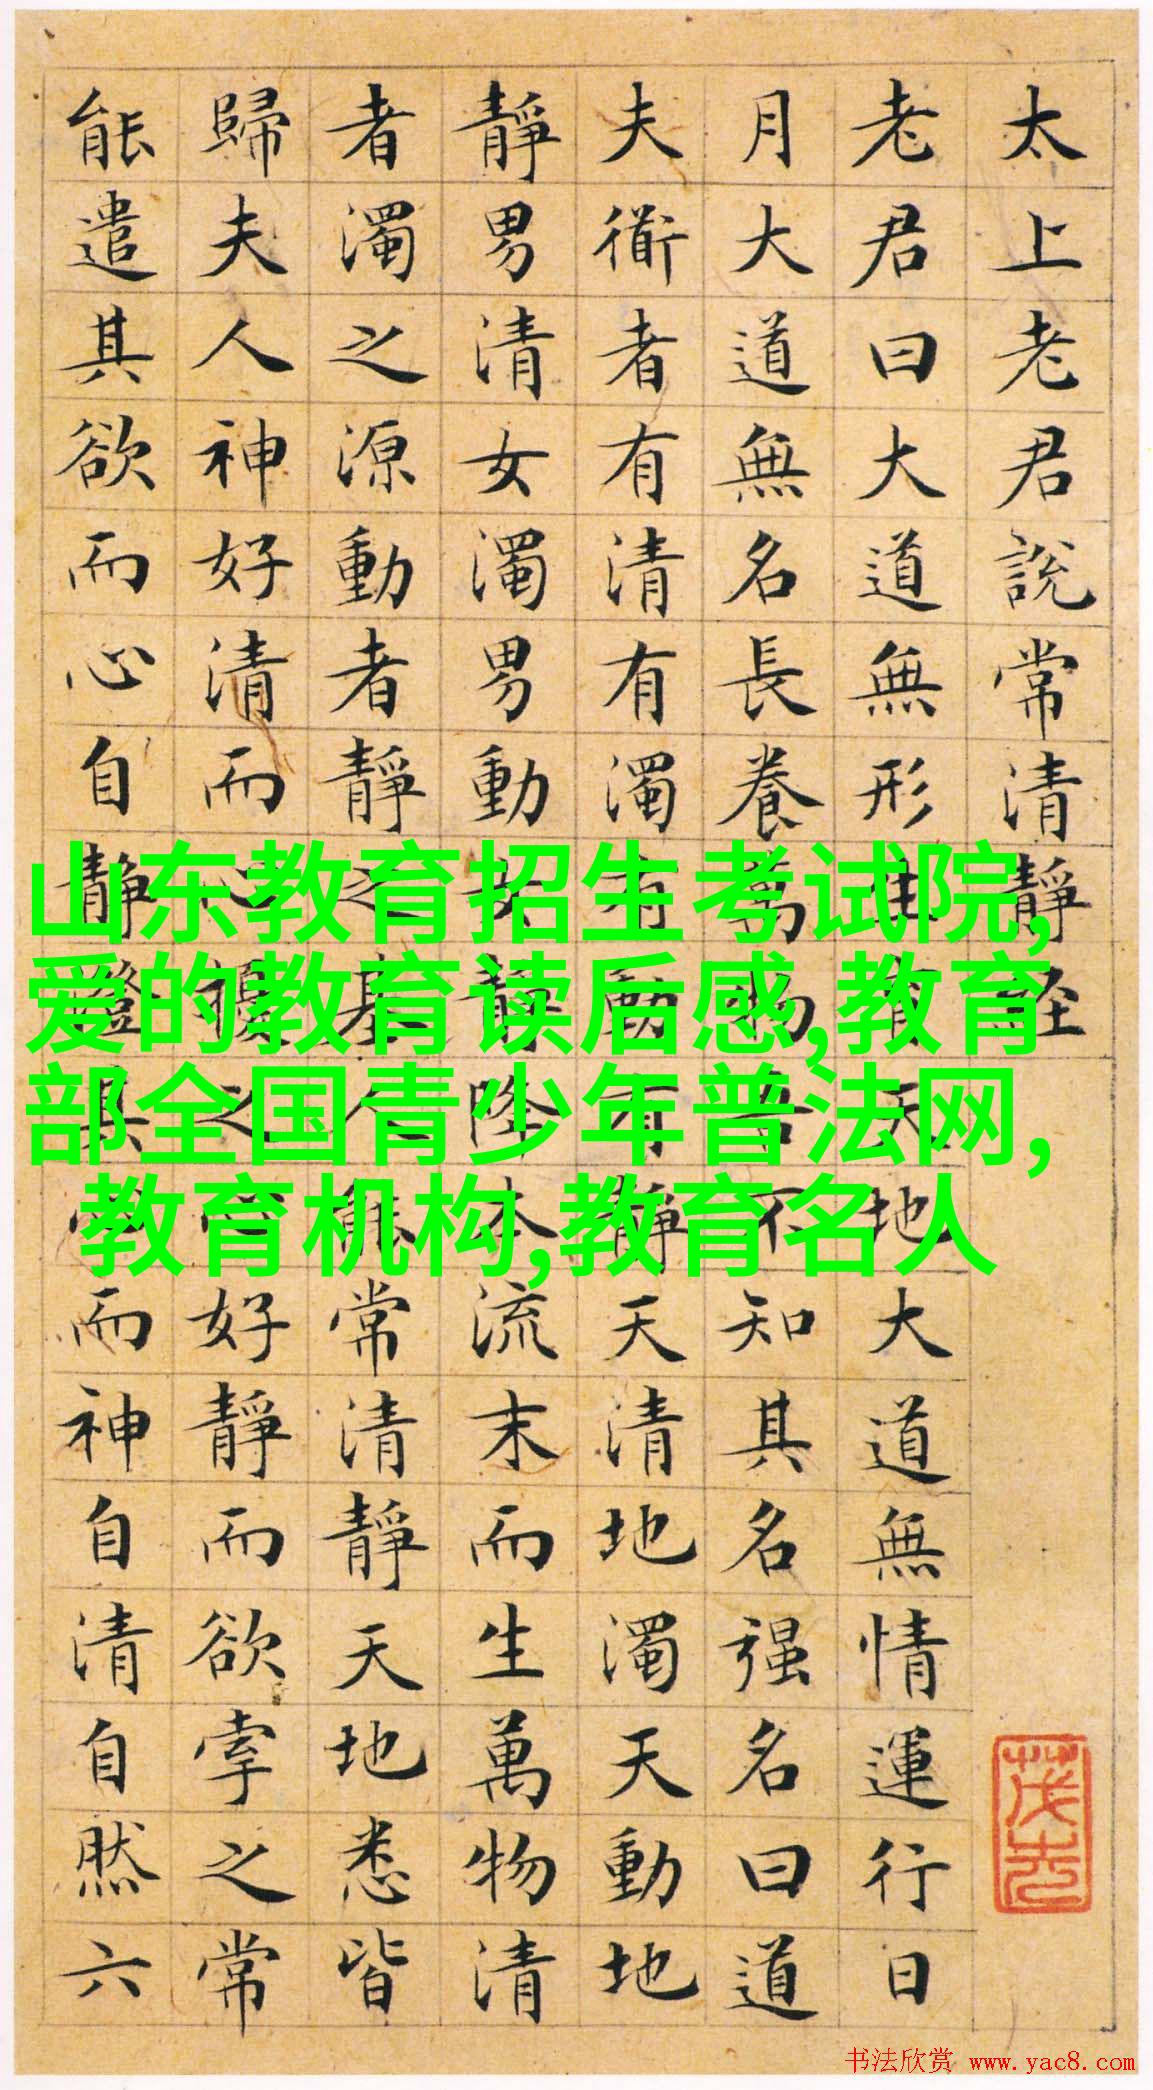 太上老君說常清靜經
老君曰大道無形生育天地大道無情運行日
月大道無名長養萬物吾不知其名强名曰道
夫衜者有清有濁有動有靜天清地濁天動地
靜男清女濁男動女靜降本流末而生萬物清
者濁之源動者靜之基人能常清靜天地悉皆
歸夫人神好清而心擾之心好靜而欲牽之常
能遣其欲而心自靜澄其心而神自清自然六
山东教育招生考试院,
爱的教育读后感,教育
部全国青少年普法网,
教育机构,教育名人
书法欣赏 www.yac8.com